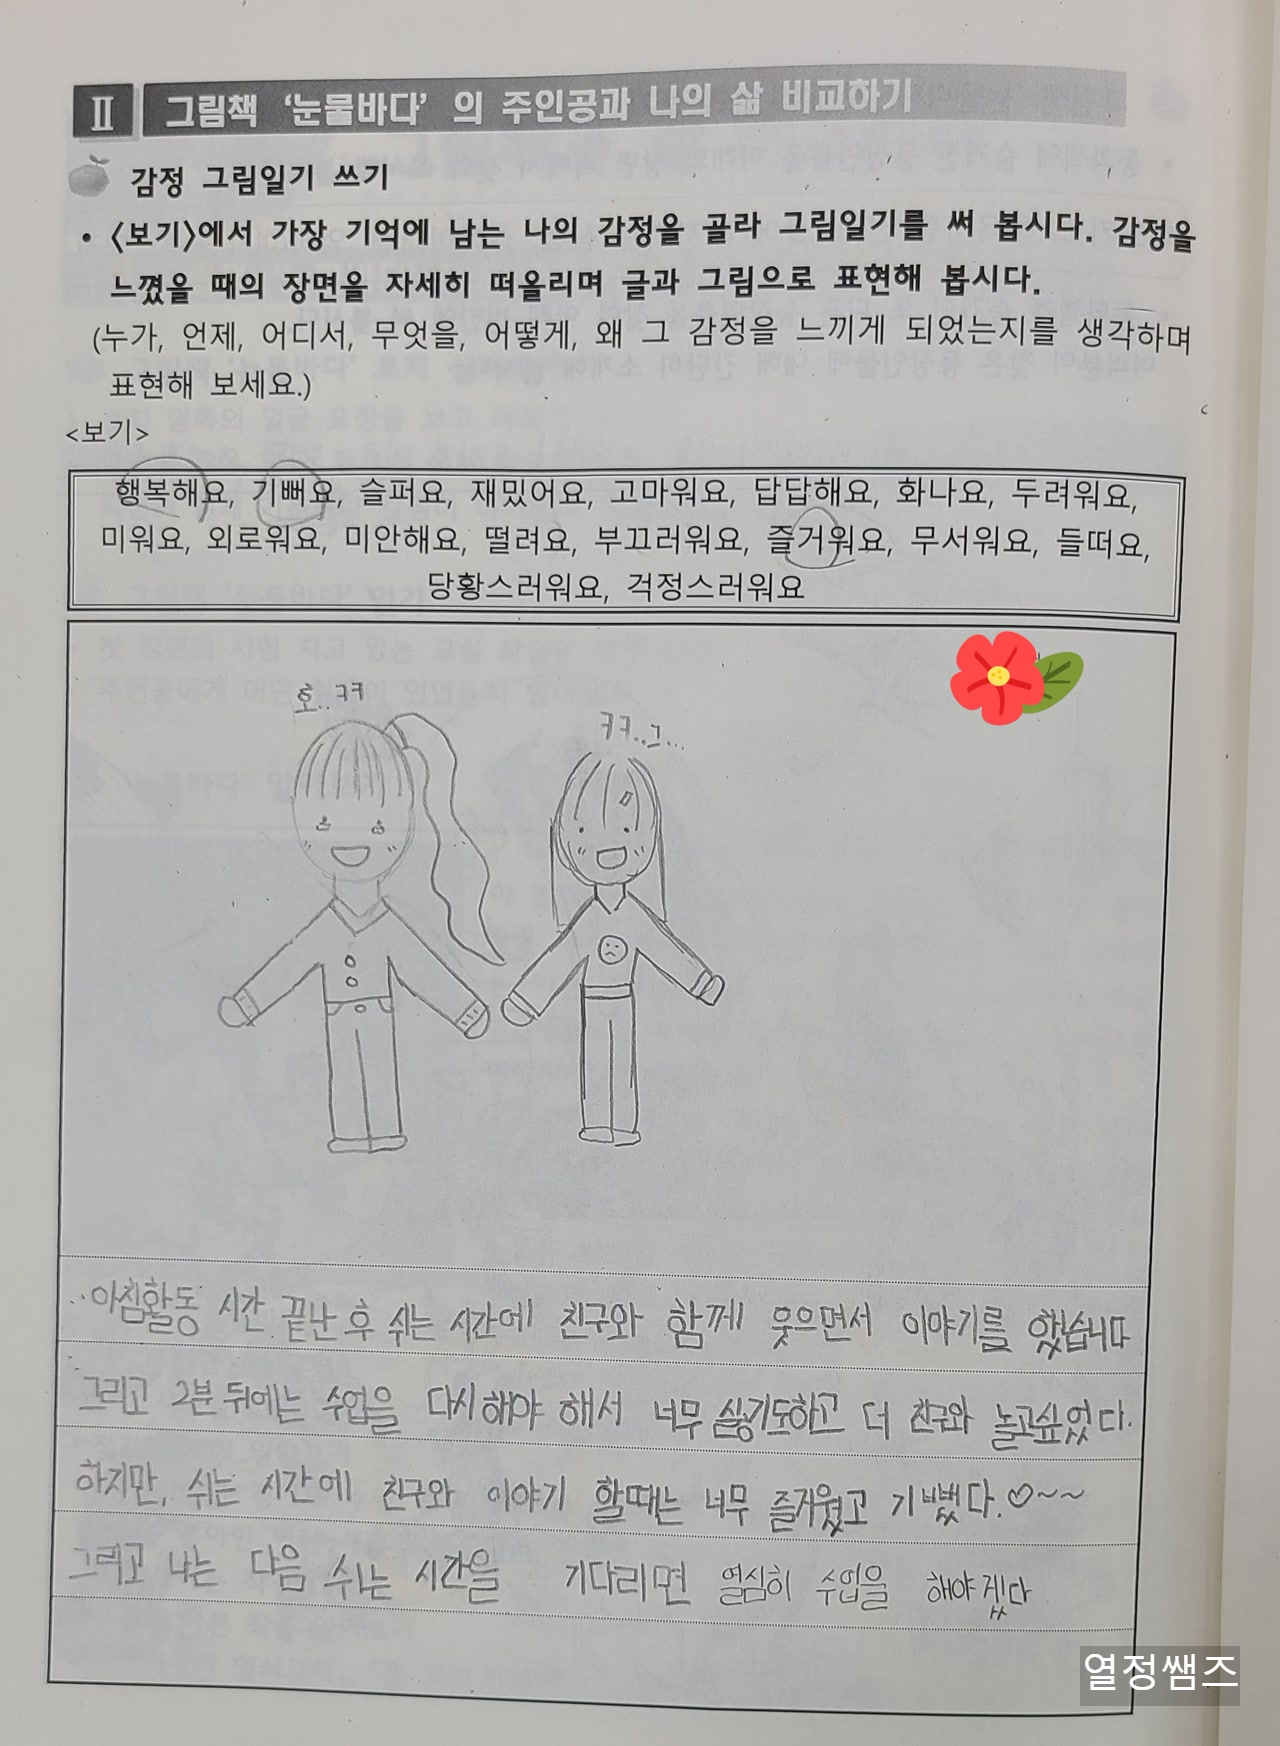 Ⅱ 그림책 ‘눈물바다’ 의 주인공과 나의 삶 비교하기
감정 그림일기 쓰기
• <보기>에서 가장 기억에 남는 나의 감정을 골라 그림일기를 써 봅시다. 감정을
느꼈을 때의 장면을 자세히 떠올리며 글과 그림으로 표현해 봅시다.
(누가, 언제, 어디서, 무엇을, 어떻게, 왜 그 감정을 느끼게 되었는지를 생각하며
표현해 보세요.)
<보기>
행복해요, 기뻐요, 슬퍼요, 재밌어요, 고마워요, 답답해요, 화나요, 두려워요,
미워요, 외로워요, 미안해요, 떨려요, 부끄러워요, 즐거워요, 무서워요, 들떠요,
당황스러워요, 걱정스러워요
호..ㅋㅋ
ㅋㅋ..그...
아침활동 시간 끝난 후 쉬는 시간에 친구와 함께 웃으면서 이야기를 했습니다
그리고 2분 뒤에는 수업을 다시 해야 해서 너무 싫기도하고 더 친구와 놀고싶었다.
하지만, 쉬는 시간에 친구와 이야기 할때는 너무 즐거웠고 기뻤다.♡~~
그리고 나는 다음 쉬는 시간을 기다리면 열심히 수업을 해야겠다
열정쌤즈